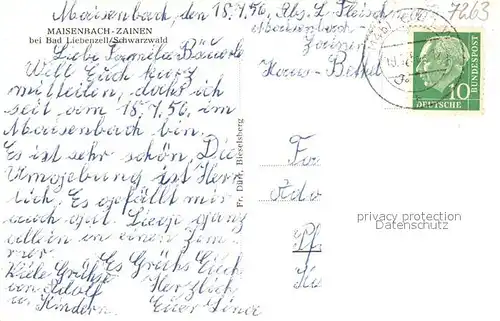 Maisenbach, den 18.7.56, Abs. L. Fleisch
7263
MAISENBACH-ZAINEN
bei Bad Liebenzell/Schwarzwald
Maisenbach-
Zainen
Haus-Bethel
Liebe Familie Bäuerle
Will Euch kurz
mitteilen, daß ich
seit vom 15.7.56. im
Maisenbach bin.
Es ist sehr schön. Die
Umgebung ist Herr
lich. Es gefällt mir
auch gut. Liege ganz
allein in einen Zim-
mer. Es Grüßt Euch
Viele Grüße
an Adolf Herzlich
u. Kindern. Eure Lina
Fr. Dürr, Bieselsberg
10
DEUTSCHE
BUNDESPOST
Fa
Ado
privacy protection
Datenschutz